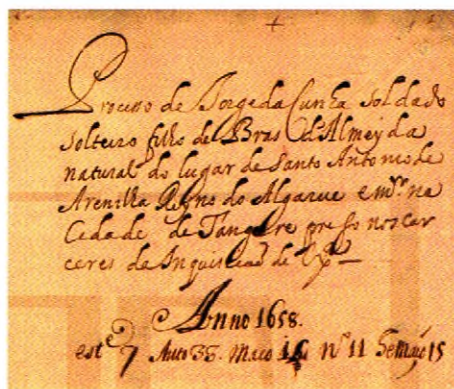 Processo de Jorge da Cunha soldado
solteiro filho de Bras d'Almeyda
natural do lugar de Santo Antonio de
Arenilha Reyno do Algarue e mor na
Cidade de Tangere preso nos car
ceres da Inquisicaõ de Lxa
Anno 1658.
est 7 Auto 38. Maco nº 11